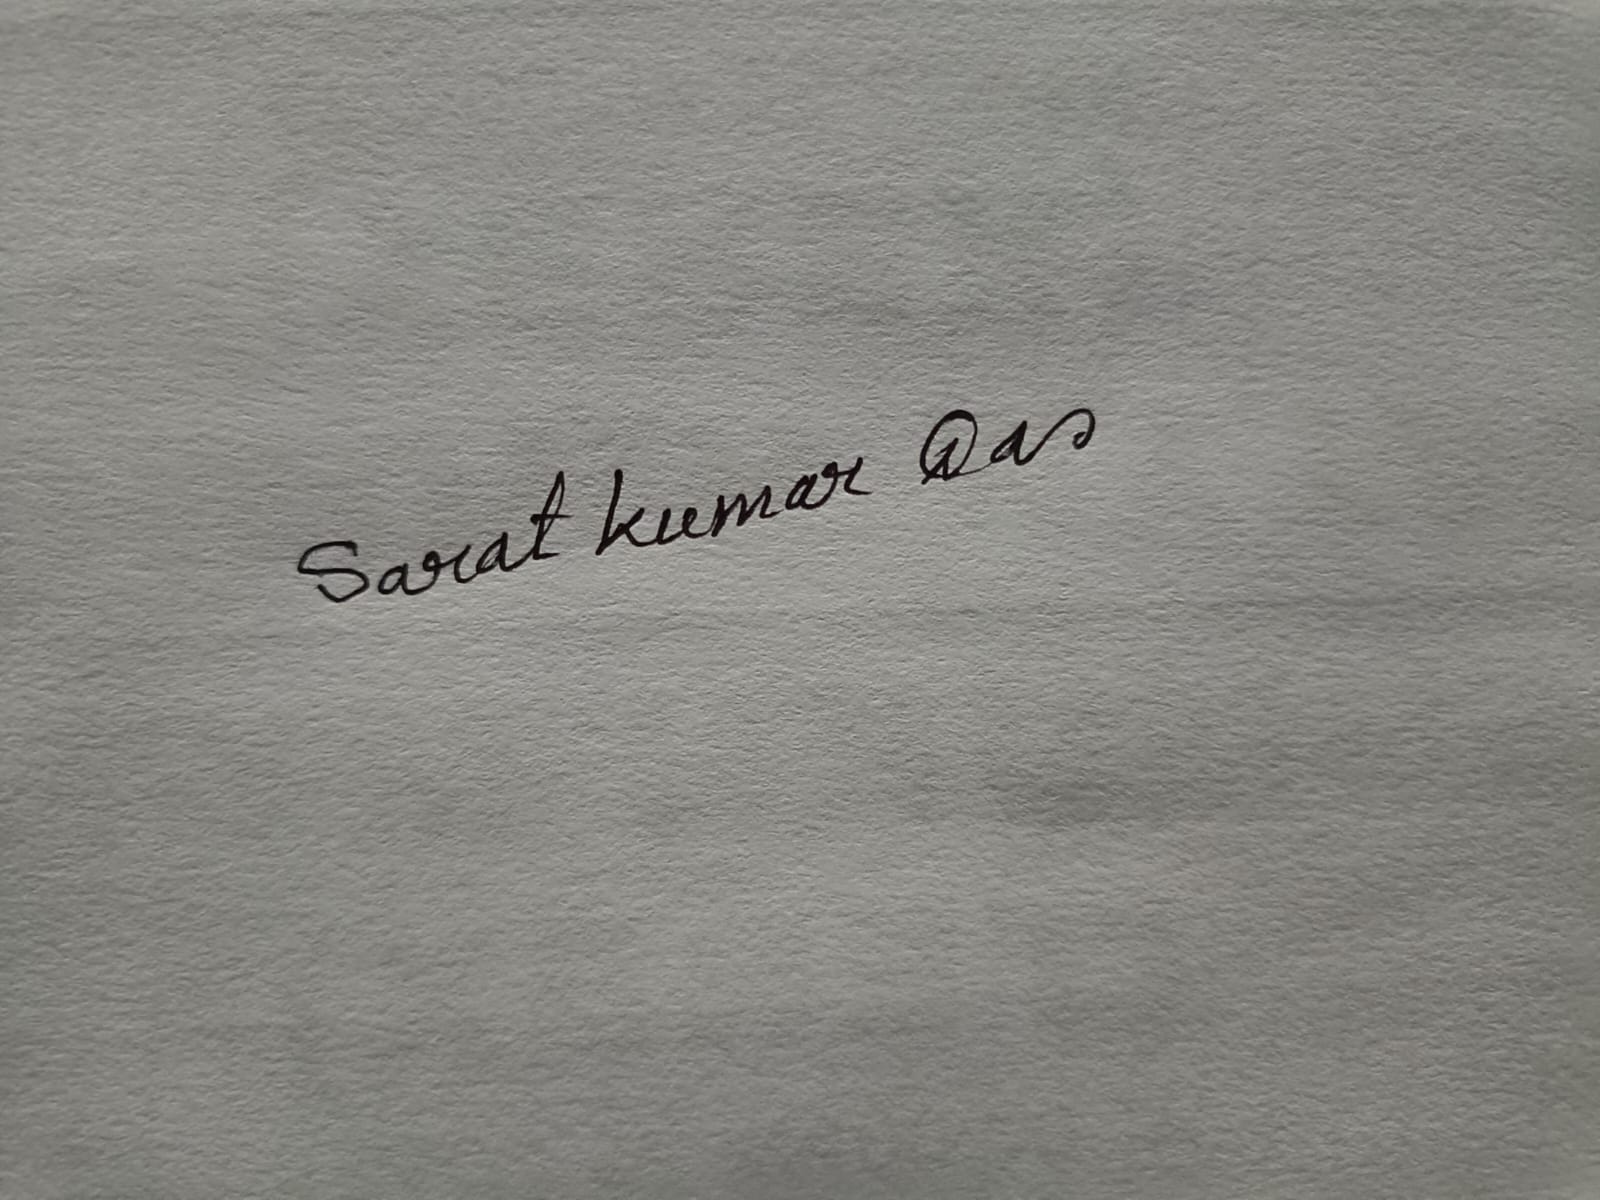 Sarat kumar Das